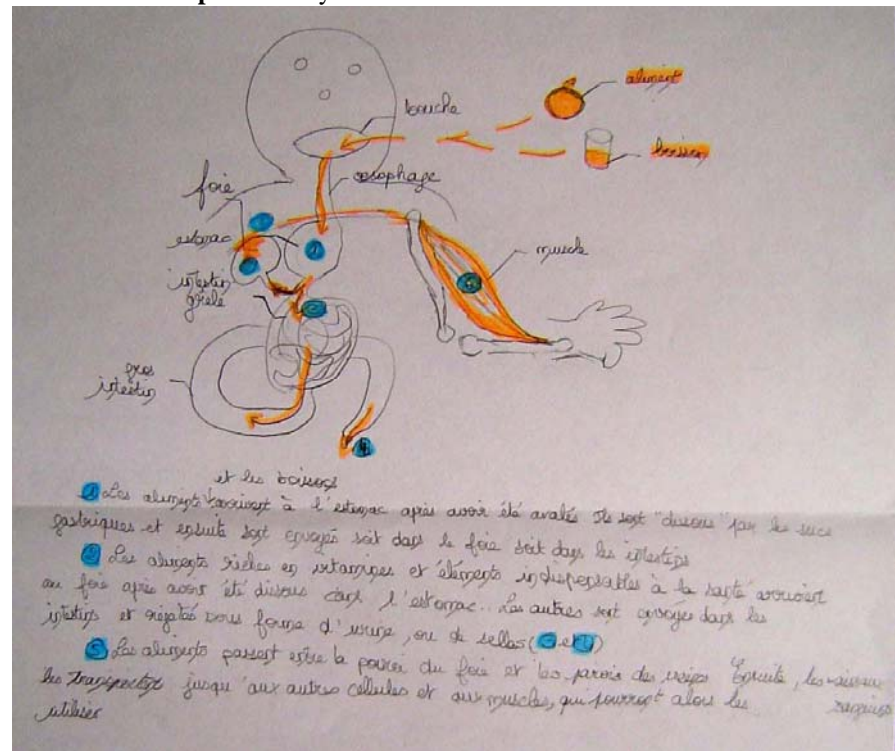 bouche
aliment
boisson
foie
œsophage
estomac
muscle
intestin
grêle
gros
intestin
et les boissons
1 Les aliments arrivent à l'estomac après avoir été avalés Ils sont "dissous" par les sucs
gastriques et ensuite sont envoyés soit dans le foie soit dans les intestins
2 Les aliments riches en vitamines et éléments indispensables à la santé arrivent
au foie après avoir été dissous dans l'estomac. Les autres sont envoyés dans les
intestins et rejetés sous forme d'urine, ou de selles ( et )
5 Les aliments passent entre la paroi du foie et les parois des Ensuite, les vaisseaux
les transportent jusqu'aux autres cellules et aux muscles, qui pourront alors les
utiliser